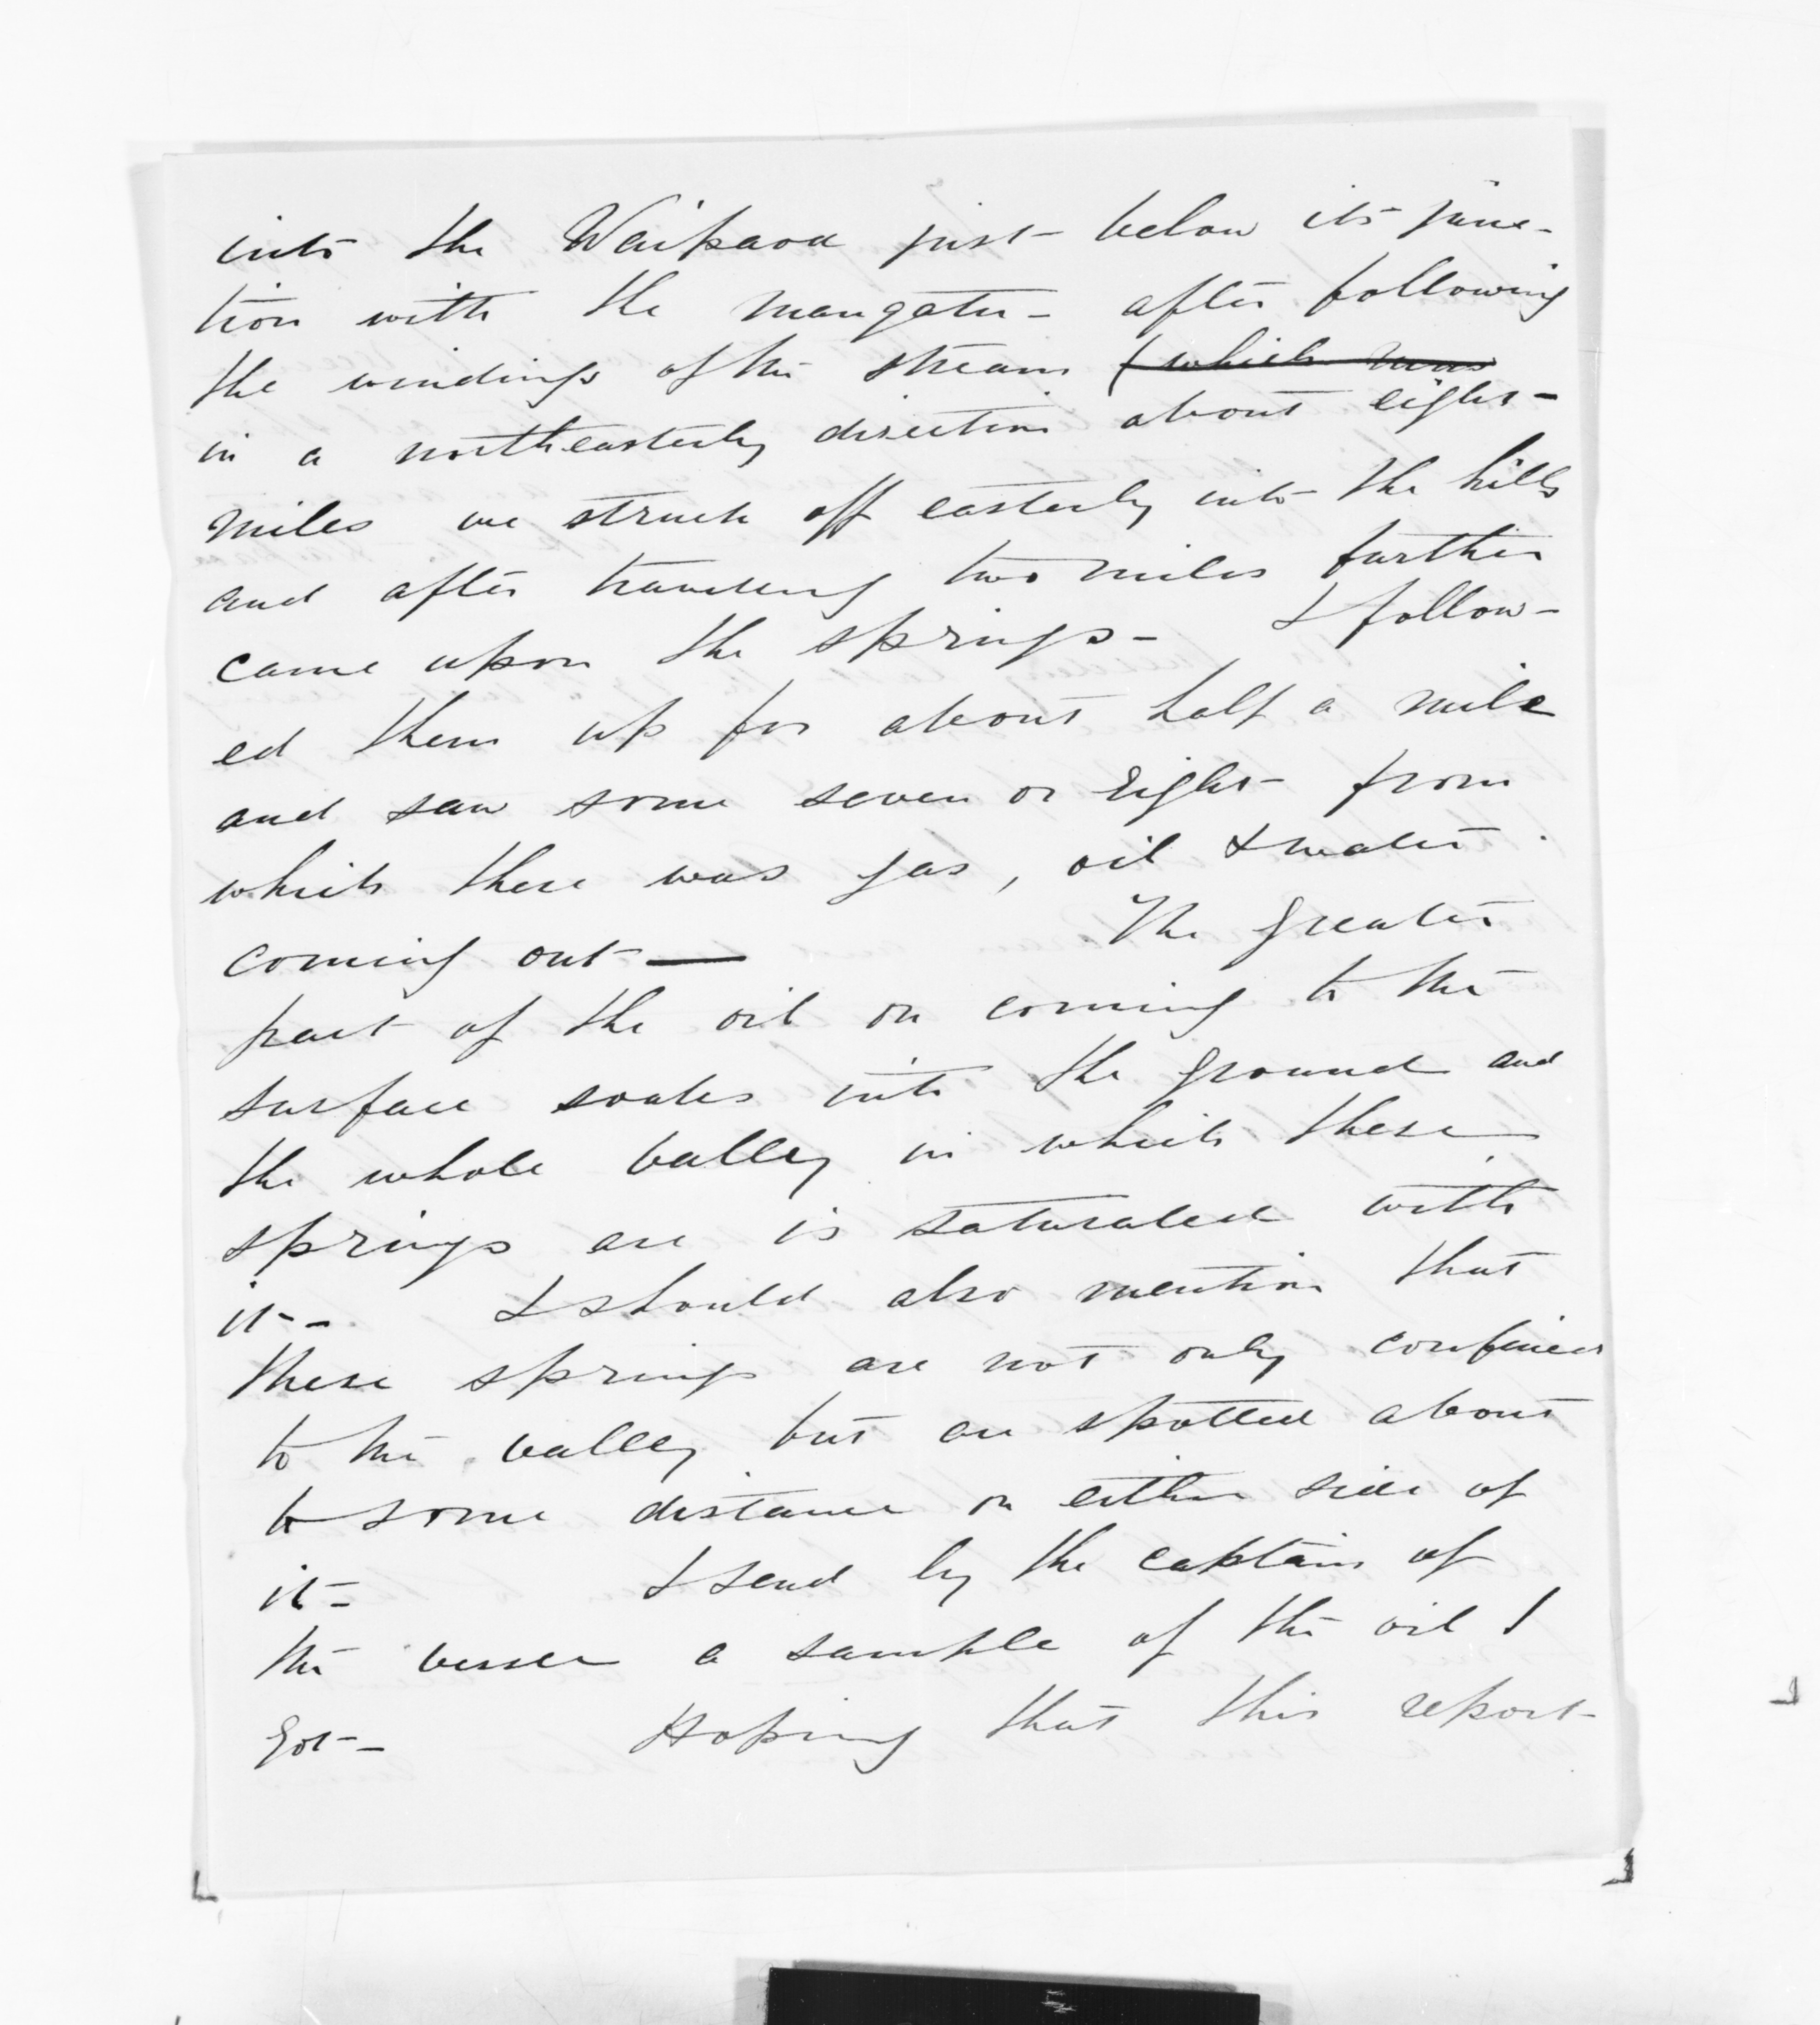 into the Waipaoa just below its junc-
tion with the Mangatu - after following
the windings of the stream (which was
in a northeasterly direction about eight
miles we struck off easterly into the hills
and after traveling two miles further
came upon the springs - I follow-
ed them up for about half a mile
and saw some seven or eight from
which there was gas, oil & water
coming out — The greater
part of the oil on coming to the
surface soaks into the ground and
the whole valley in which these
springs are is saturated with
it - I should also mention that
these springs are not only confined
to the valley but are spotted about
to some distance on either side of
it - I send by the captain of
the vessel a sample of the oil I
got - Hoping that this report